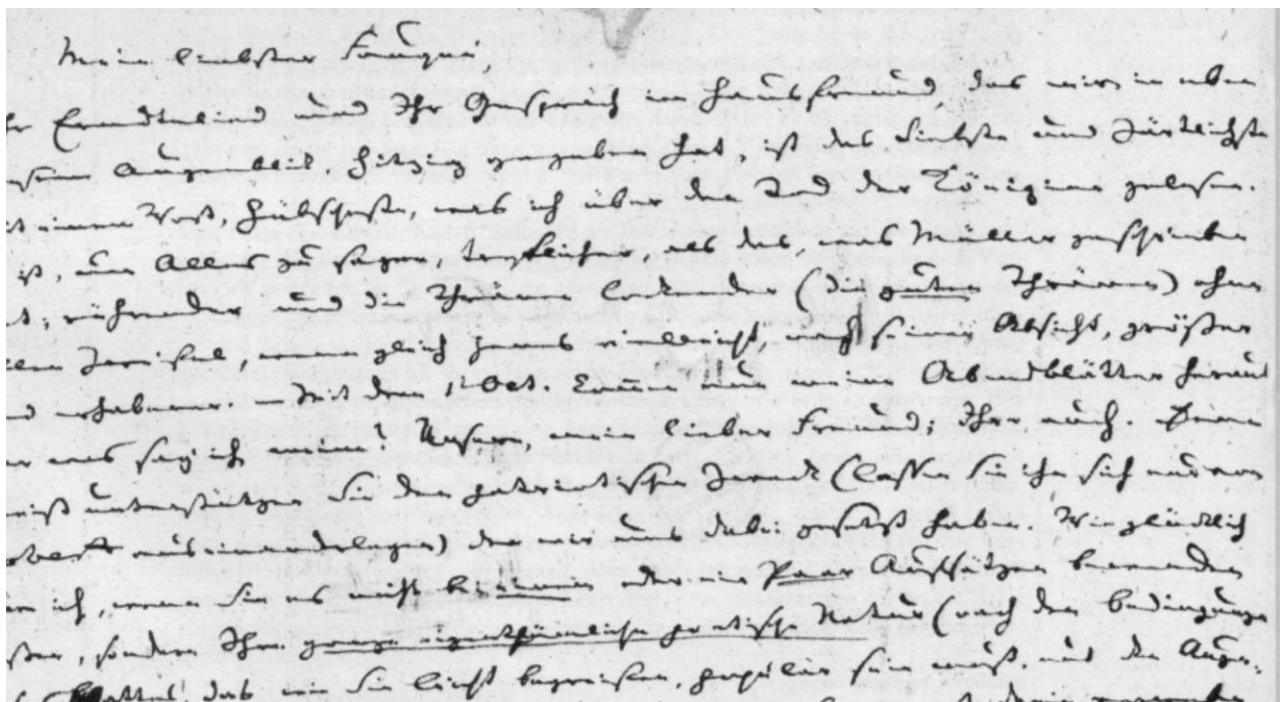 Mein liebster Fouqué,
Erndtelied und Ihr Gespräch im Hausfreund, das mir in eben
Augenblick Hitzig gegeben hat, ist das Liebste und Zärtlichste
einem Wort, Hübscheste, was ich über den Tod der Königinn gelesen.
ist, um Alles zu sagen, trefflicher als das was Müller geschrieben
rührender und die Thränen lockender (die guten Thränen) ohne
Zweifel, wenn gleich jenes vielleicht, nach seiner Absicht, größer
erhabener. — Mit dem 1t Oct. kommen nun meine Abendblätter heraus
was sag ich meine? Unsere, mein lieber Freund; Ihre auch. Denn
unterstützen Sie den patriotischen Zweck (lassen Sie ihn sich
auseinanderlegen) den wir uns dabei gesetzt haben. Wie glücklich
ich, wenn Sie es nicht bei einem oder ein Paar Aufsätzen bewenden
sondern Ihre ganze eigenthümliche poetische Natur (nach den Bedingungen
Blattes, das wie Sie leicht begreifen, populär sein muß, mit den